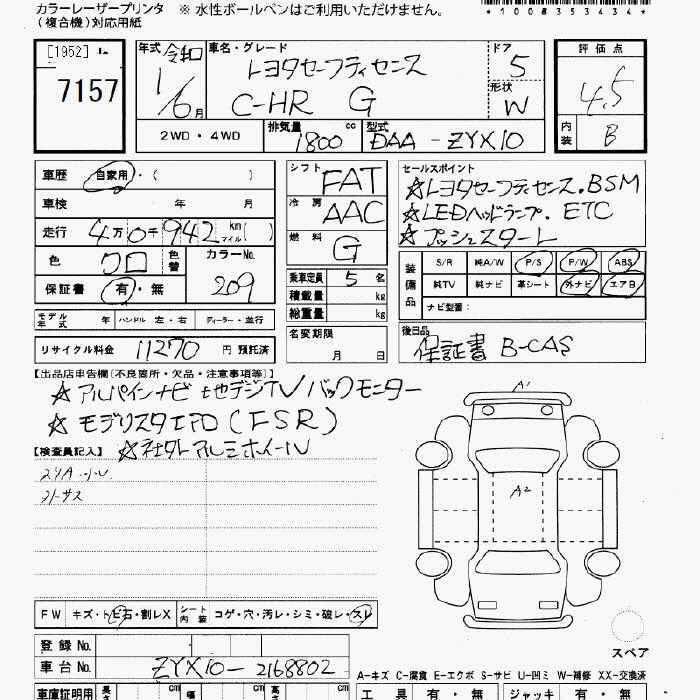 カラーレーザープリンタ ※ 水性ボールペンはご利用いただけません。
（複合機）対応用紙 *100835343４*
[1952]
7157
年式 令和 1/6月
車名・グレード トヨタセーフティセンス
C-HR G
ドア 5
形状 W
評価点 4.5
内装 B
2WD・4WD
排気量 1800 cc
型式 DAA-ZYX10
車歴 自家用・( )
車検 年 月
走行 4万0千942 km マイル ( )
色 クロ 色替
カラーNo. 209
保証書 有・無
シフト FAT
冷房 AAC
燃料 G
セールスポイント
☆トヨタセーフティセンス.BSM
☆LEDヘッドランプ. ETC
☆プッシュスタート
乗車定員 5 名
積載量 kg
総重量 kg
装備品
S/R 純A/W P/S P/W ABS
純TV 純ナビ 革シート 外ナビ エアB
ナビ型番：
モデル年式 年 ハンドル 左・右 ディーラー・並行
名変期限 月 日
後日品 保証書 B-CAS
リサイクル料金 11270 円 預託済
【出品店申告欄(不良箇所・欠品・注意事項等)】
☆アルパインナビ 地デジTV バックモニター
☆モデリスタエアロ(FSR)
【検査員記入】 ☆社外アルミホイール
A1
A2
FW キズ・トビ石・割レX
シート内装 コゲ・穴・汚レ・シミ・破レ・スレ
スペア
登録No.
車台No. ZYX10-2168802
A-キズ C-腐食 E-エクボ S-サビ U-凹ミ W-補修 XX-交換済
車庫証明用 長さ cm 幅 cm 高さ cm
工具 有・無 ジャッキ 有・無